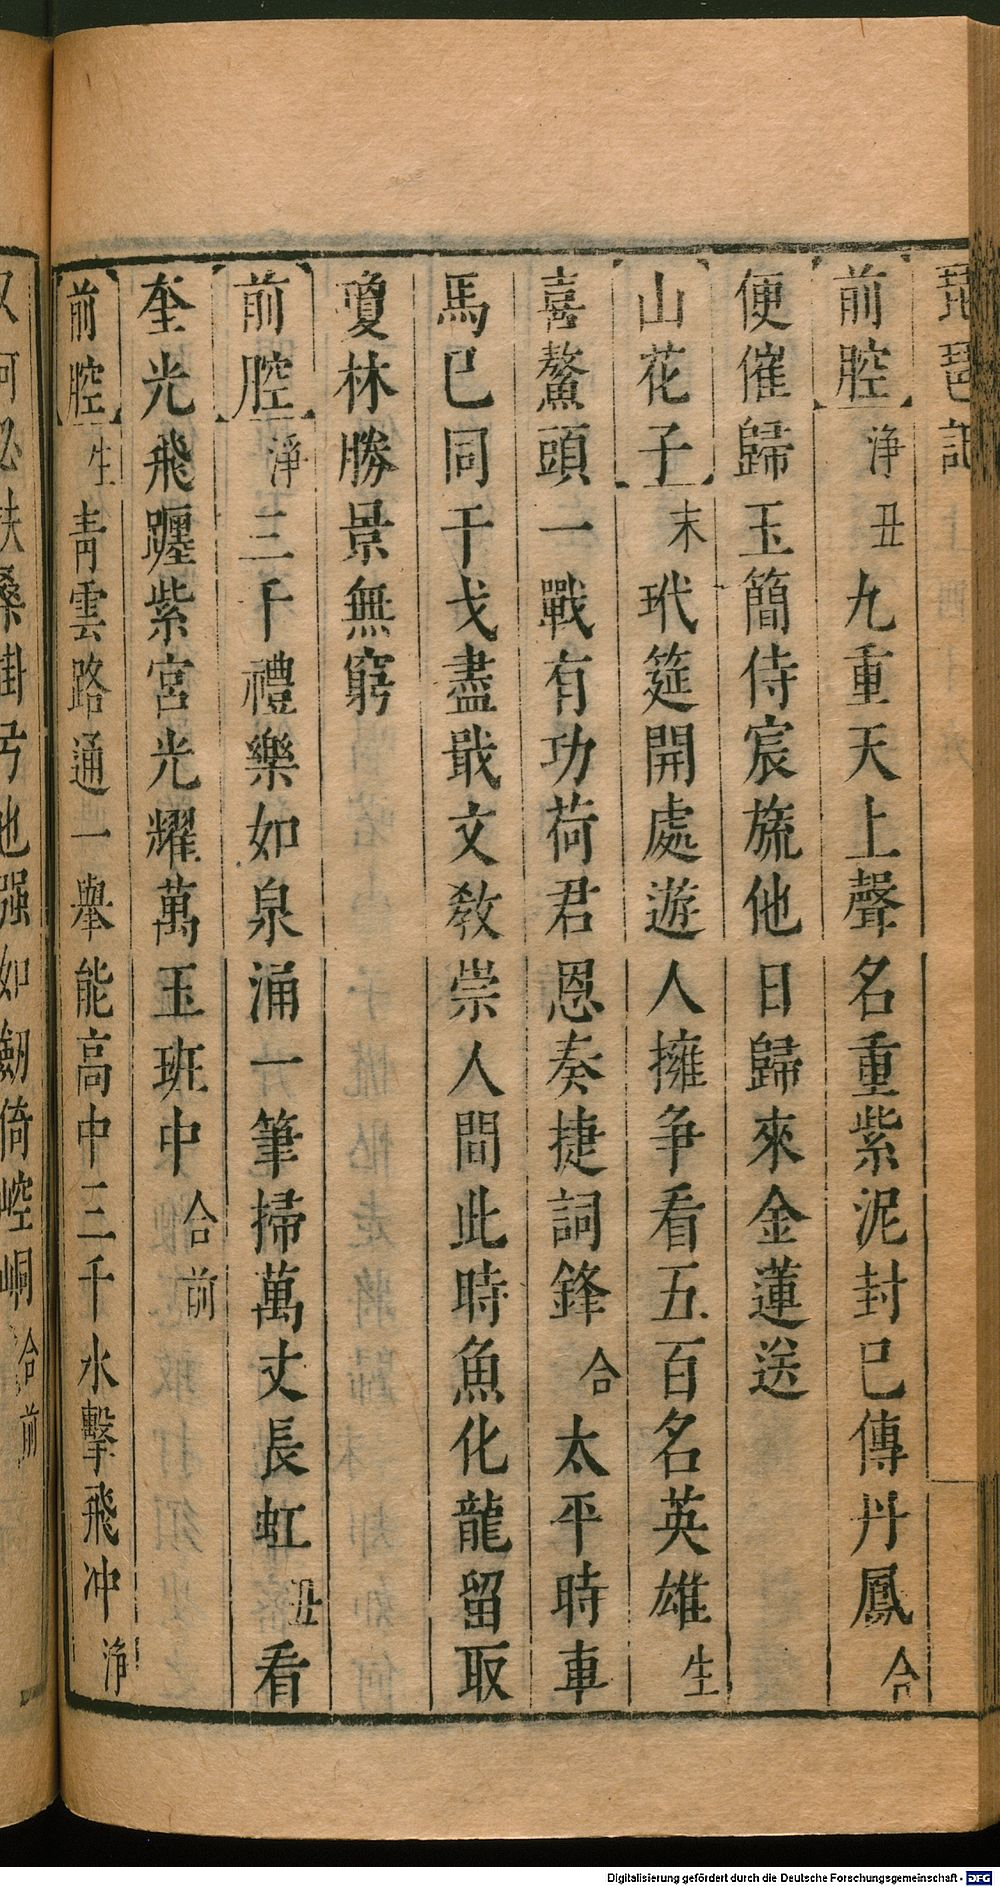 琵琶記
【前腔】淨丑九重天上聲名重紫泥封已傳丹鳳合
便催歸玉簡侍宸旒他日歸來金蓮送
【山花子】末玳筵開處遊人擁爭看五百名英雄生
喜鰲頭一戰有功荷君恩奏捷詞鋒合太平時車
馬已同干戈盡戢文教崇人間此時魚化龍留取
瓊林勝景無窮
【前腔】淨三千禮樂如泉涌一筆掃萬丈長虹丑看
奎光飛躔紫宮光耀萬玉班中合前
【前腔】生青雲路通一舉能高中三千水擊飛冲淨
又何必扶桑掛弓也强如劒倚崆峒合前
Digitalisierung gefördert durch die Deutsche Forschungsgemeinschaft - DFG